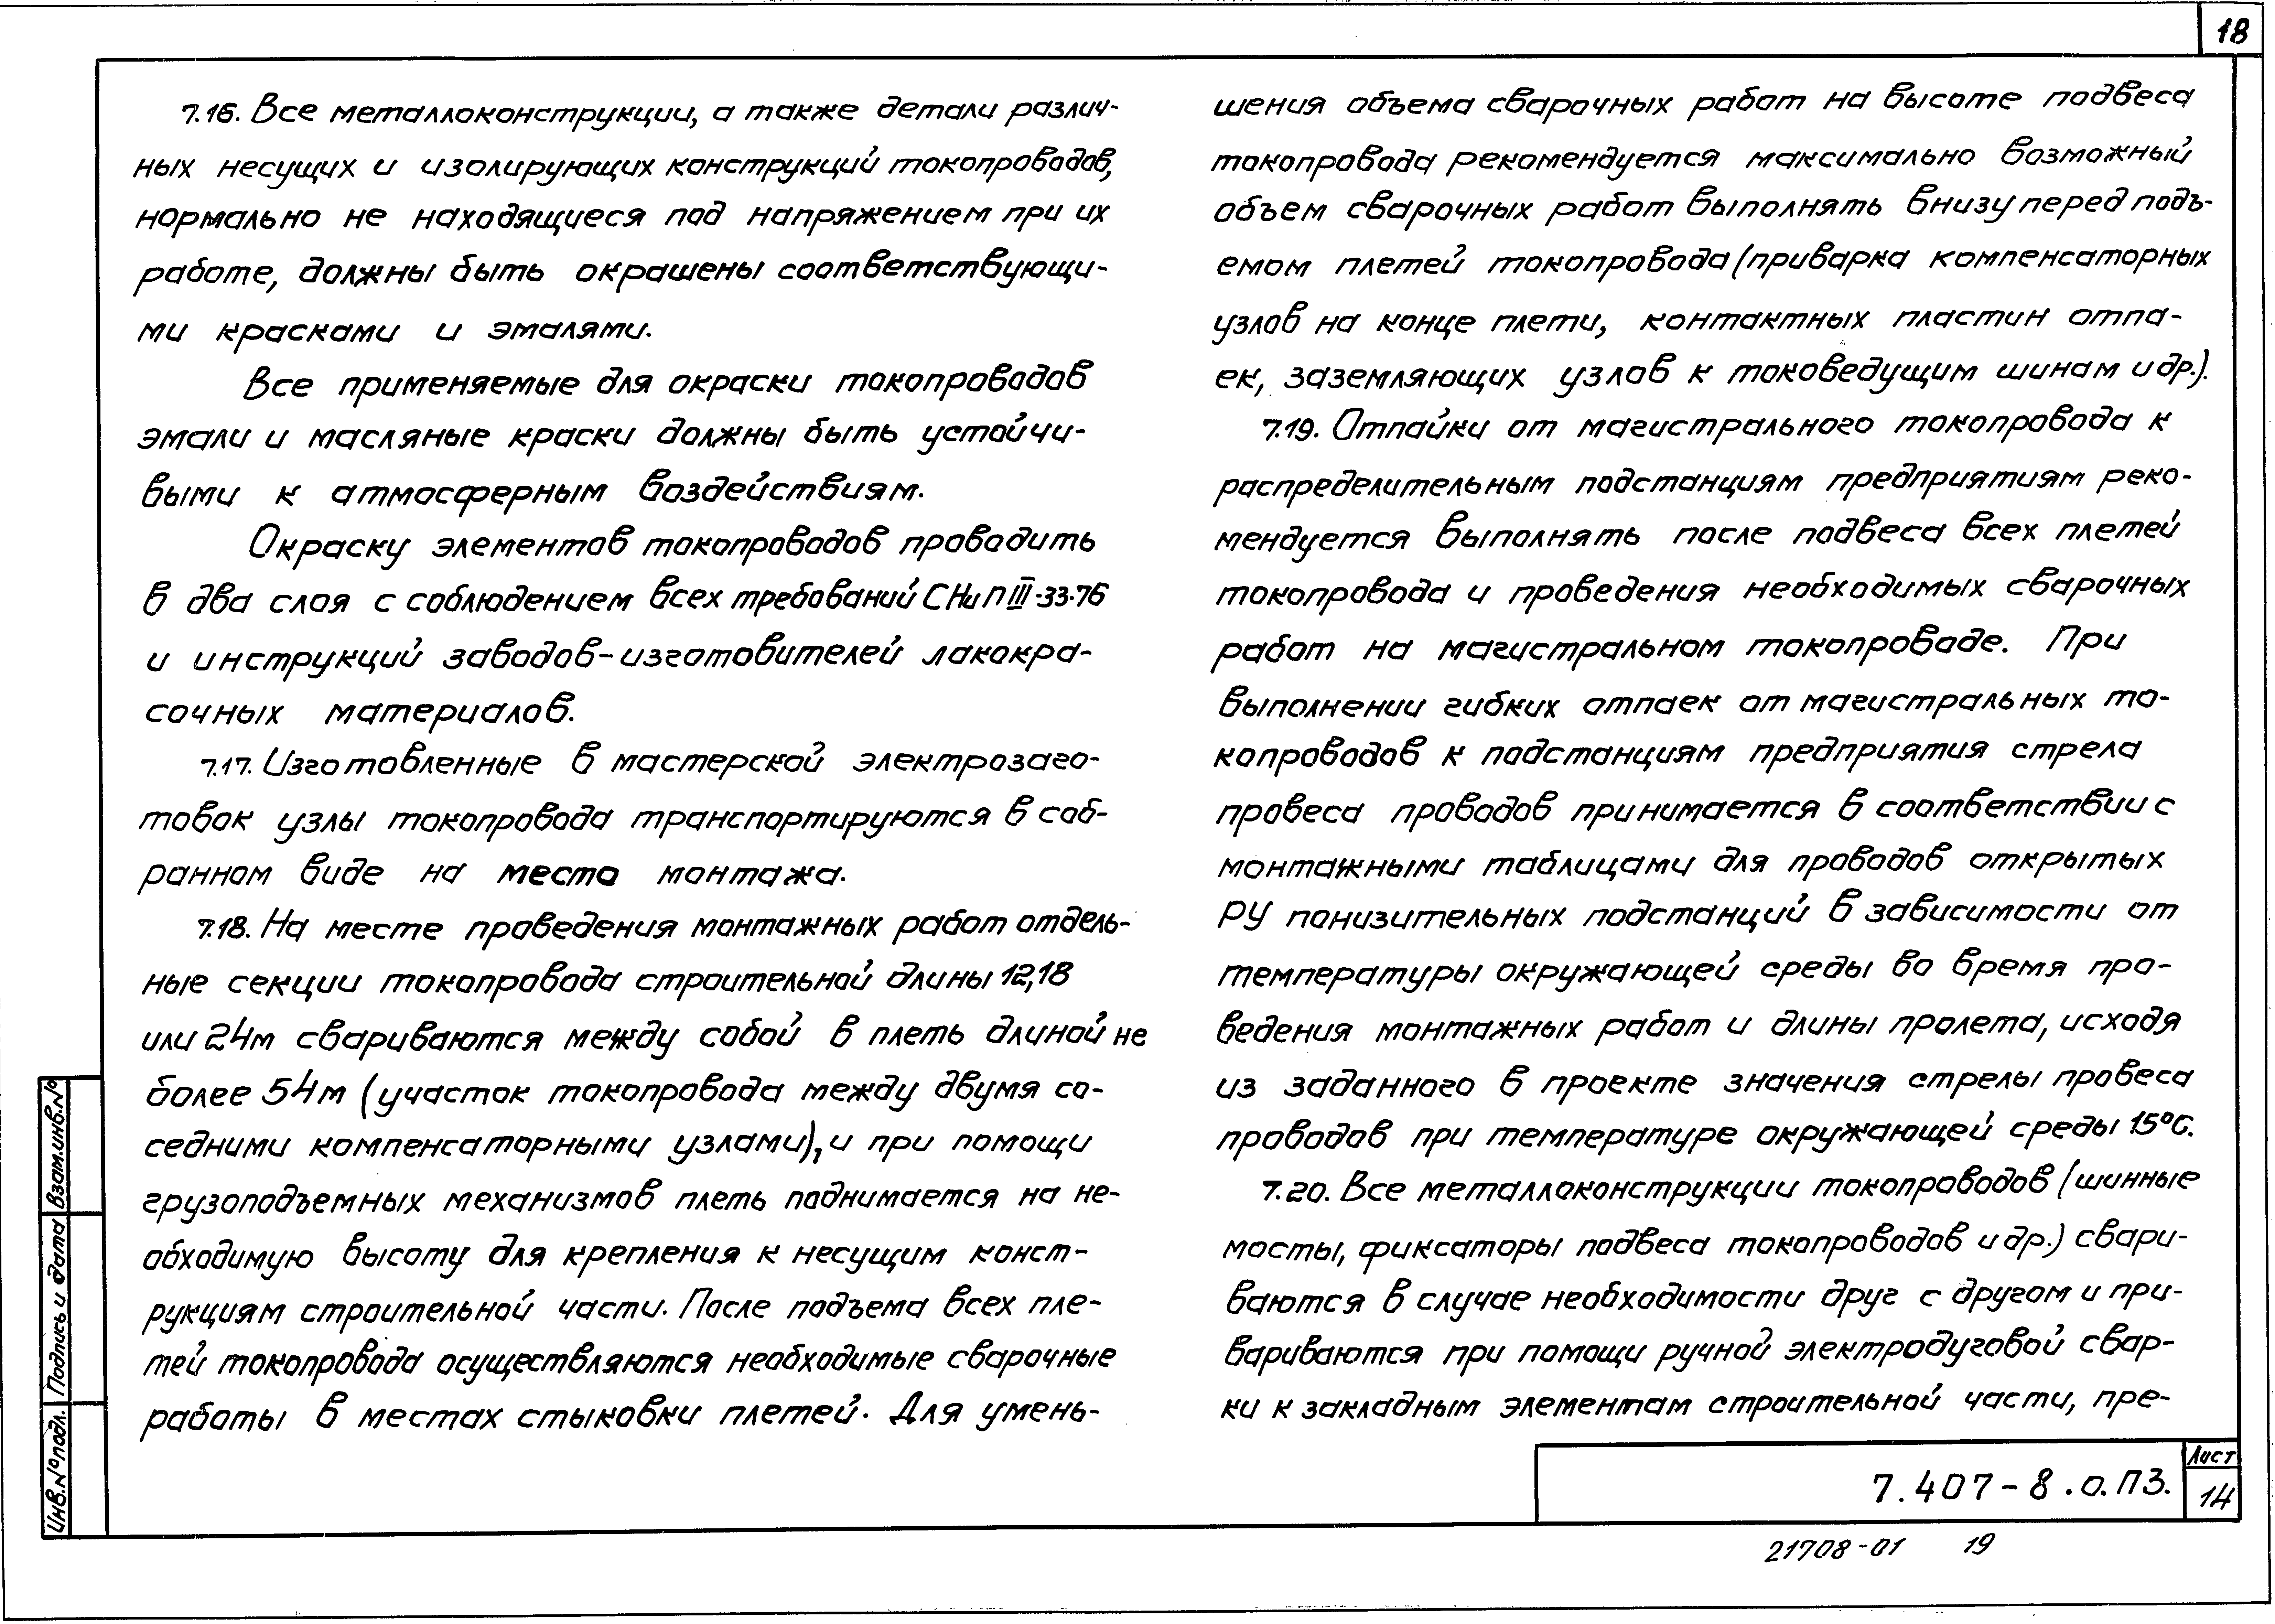 18
7.16. Все металлоконструкции, а также детали различ-
ных несущих и изолирующих конструкций токопроводов,
нормально не находящиеся под напряжением при их
работе, должны быть окрашены соответствующи-
ми красками и эмалями.
Все применяемые для окраски токопроводов
эмали и масляные краски должны быть устойчи-
выми к атмосферным воздействиям.
Окраску элементов токопроводов проводить
в два слоя с соблюдением всех требований СНиП III-33-76
и инструкций заводов-изготовителей лакокра-
сочных материалов.
7.17. Изготовленные в мастерской электрозаго-
товок узлы токопровода транспортируются в соб-
ранном виде на место монтажа.
7.18. На месте проведения монтажных работ отдель-
ные секции токопровода строительной длины 12,18
или 24м свариваются между собой в плеть длиной не
более 54м (участок токопровода между двумя со-
седними компенсаторными узлами), и при помощи
грузоподъемных механизмов плеть поднимается на не-
обходимую высоту для крепления к несущим конст-
рукциям строительной части. После подъема всех пле-
тей токопровода осуществляются необходимые сварочные
работы в местах стыковки плетей. Для умень-
шения объема сварочных работ на высоте подвеса
токопровода рекомендуется максимально возможный
объем сварочных работ выполнять внизу перед подъ-
емом плетей токопровода (приварка компенсаторных
узлов на конце плети, контактных пластин отпа-
ек, заземляющих узлов к токоведущим шинам и др.).
7.19. Отпайки от магистрального токопровода к
распределительным подстанциям предприятиям реко-
мендуется выполнять после подвеса всех плетей
токопровода и проведения необходимых сварочных
работ на магистральном токопроводе. При
выполнении гибких отпаек от магистральных то-
копроводов к подстанциям предприятия стрела
провеса проводов принимается в соответствии с
монтажными таблицами для проводов открытых
РУ понизительных подстанций в зависимости от
температуры окружающей среды во время про-
ведения монтажных работ и длины пролета, исходя
из заданного в проекте значения стрелы провеса
проводов при температуре окружающей среды 15°С.
7.20. Все металлоконструкции токопроводов (шинные
мосты, фиксаторы подвеса токопроводов и др.) свари-
ваются в случае необходимости друг с другом и при-
вариваются при помощи ручной электродуговой свар-
ки к закладным элементам строительной части, пре-
Взам.инв.№
Подпись и дата
Инв.№ подл.
7.407-8.0.ПЗ.
Лист
14
21708-01 19